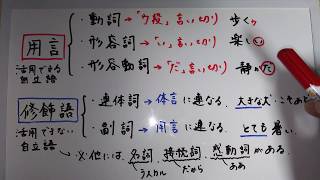 ・動詞→「ウ段」言い切り 歩く
用言 ・形容詞→「い」言い切り 楽しい
活用できる
自立語
・形容動詞→「だ」言い切り 静かだ
修飾語 ・連体詞→体言に連なる。大きな犬 こそあど
活用できない
自立語
・副詞→用言に連なる。とても暑い。
※他には、名詞 接続詞 感動詞がある。
だから ああ